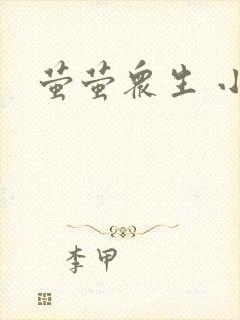 萤萤众生 小
李甲